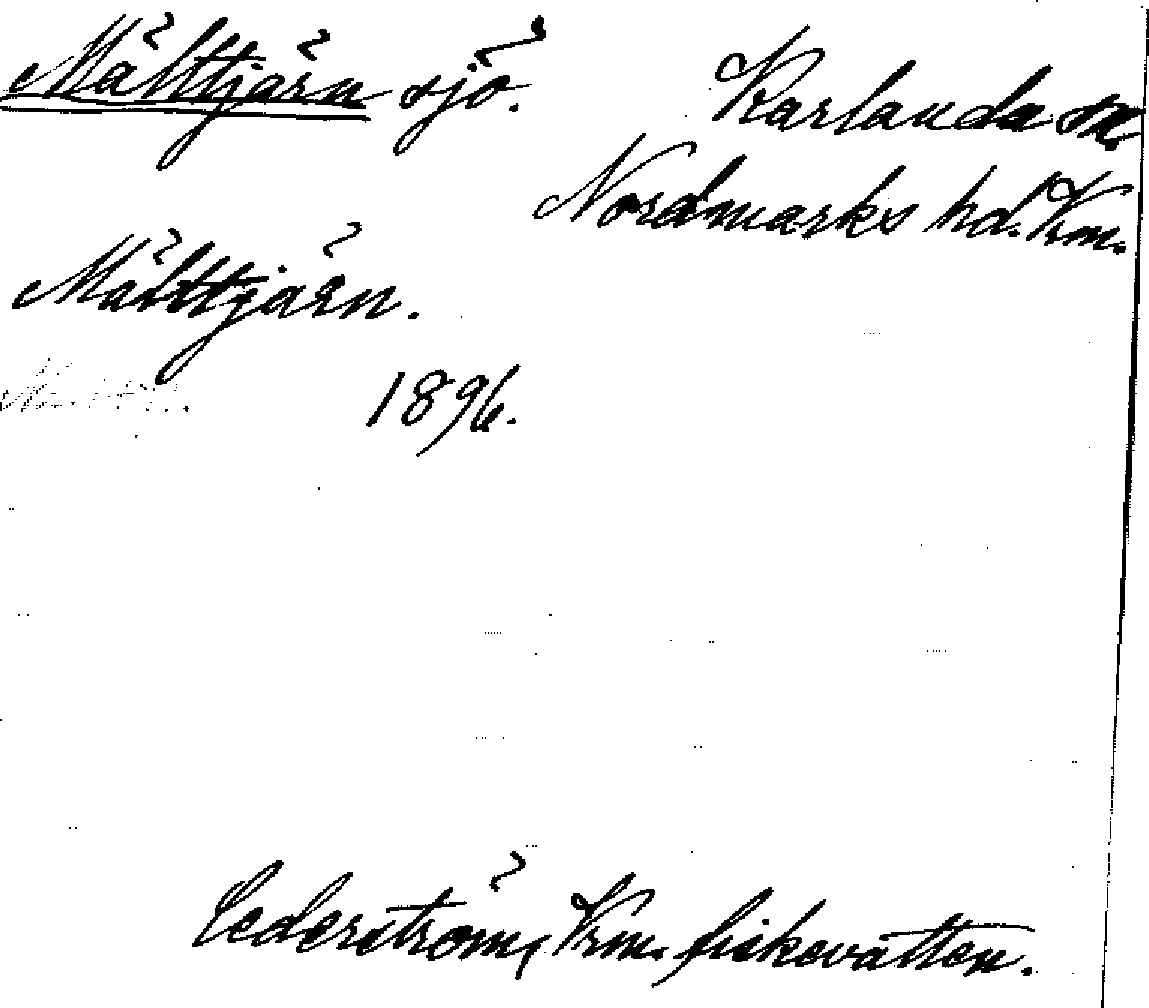 Mälttjärn sjö. Karlanda sn
Nordmarks hd. Vrm.
Mälttjärn.
1896.
Cederström, Vrm. fiskevatten.